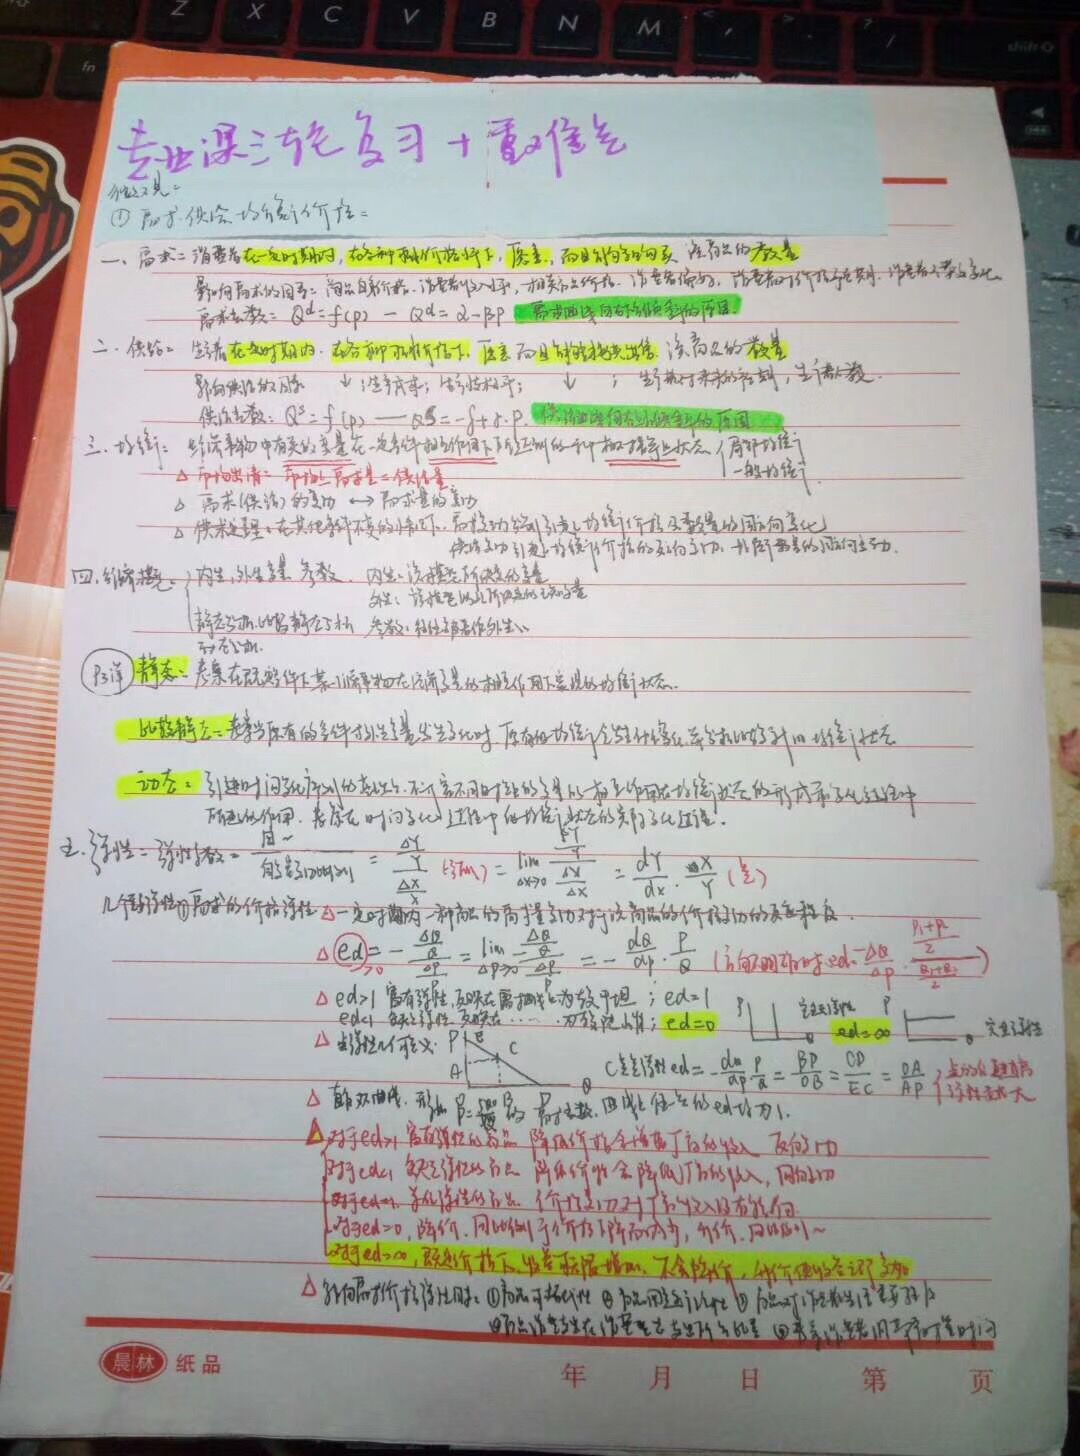 Z X C V B N M
fn
shift
专业课三轮复习+重难点
微观:
① 需求、供给、均衡价格:
一、需求:消费者在一定时期内,在各种可能价格水平下,愿意而且能够购买该商品的数量
影响需求的因素:商品自身价格、消费者收入水平,相关商品价格、消费者偏好,消费者对价格预期、消费者人数变化
需求函数:Q^d=f(p) — Q^d=α-βP 需求曲线向右下倾斜的原因.
二、供给:生产者在一定时期内.在各种可能价格下,愿意而且能够提供出售该商品的数量
影响供给的因素 ↓;生产成本;生产技术水平; ↓ ;生产者对未来的预期,生产者人数.
供给函数:Q^s=f(p) — Q^s=-δ+γ·P. 供给曲线向右上倾斜的原因
三、均衡:经济事物中有关的变量在一定条件相互作用下所达到的一种相对静止状态 局部均衡
一般均衡
△ 市场出清:市场上需求量=供给量
△ 需求(供给)的变动 ↔ 需求量的变动
△ 供求定理:在其他条件不变的情况下.需求变动分别引起均衡价格及数量的同方向变化
供给变动引起均衡价格的反向变动.均衡数量的同向变动.
四、经济模型: 内生,外生变量 参数 内生:该模型所决定的变量
外生:该模型以外所决定的已知变量
静态分析.比较静态分析 参数:
动态分析.
静态:考察在既定条件下某一经济事物在经济变量的相互作用下实现的均衡状态.
比较静态:考察当原有的条件或外生变量发生变化时.原有的均衡会发生什么变化,并分析比较新旧均衡状态
动态:引进时间变化序列的基础上.研究不同时点的变量的相互作用在均衡状态的形成和变化过程中
所起的作用.考察在时间变化过程中的均衡状态的实际变化过程.
五、弹性:弹性系数= 因~ / 自变量变动比例 = (ΔY/Y)/(ΔX/X) (弧) = lim Δx→0 (ΔY/Y)/(ΔX/X) = dY/dx · X/Y (点)
几个弹性①需求的价格弹性 △一定时期内一种商品的需求量变动对于该商品的价格变动的反应程度.
△ ed = -(ΔQ/Q)/(ΔP/P) = lim ΔP→0 -(ΔQ/Q)/(ΔP/P) = -dQ/dp · P/Q (方向不明确时 ed=-ΔQ/Δp · ((P1+P2)/2)/((Q1+Q2)/2))
△ ed>1 富有弹性,反映在需求曲线上为较平坦; ed=1
ed<1 缺乏弹性 反映在…… 为较陡峭; ed=0 P 完全无弹性 ed=∞ P 完全弹性
△ 点弹性几何意义: P B C A Q C点点弹性ed=-dQ/dp · P/Q = = = OA/AP
△ 直角双曲线.形如 的需求函数.曲线上任一点的ed均为1.
△对于ed>1富有弹性的商品 降低价格会增加厂商的收入 反向变动
对于ed<1缺乏弹性的商品 降低价格会降低厂商的收入,同向变动
对于ed=1单位弹性的商品 价格变动对厂商收入没有影响
对于ed=0,降价.同比例于价格下降而减少,升价.同比例~
对于ed=∞,既定价格下.收益可无限增加.不会降价,
△ 影响需求价格弹性因素:①商品可替代性 ②商品用途广泛性 ③商品对消费者生活重要程度
④商品消费支出在消费者总支出所占比重 ⑤考察消费者调节需求量时间
晨林 纸品
年 月 日 第 页